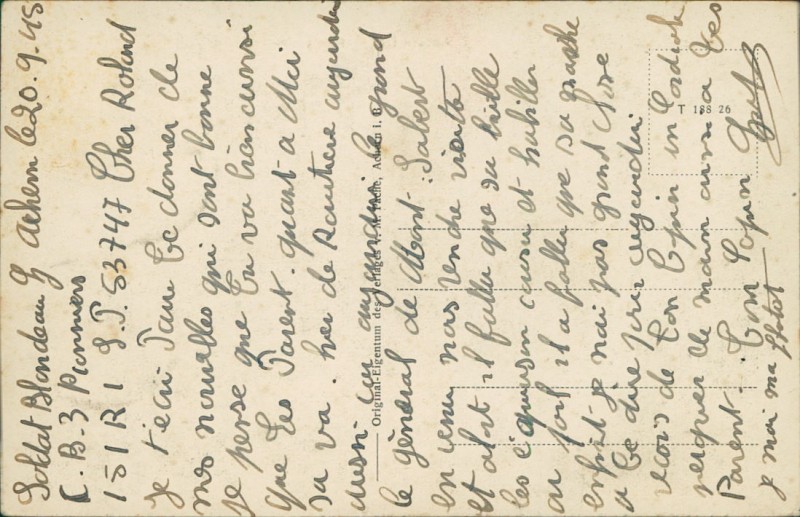 Soldat Blondeau G Achern le 20.9.45
C.B-3 Pionniers
151 R I S.P. 53747 Cher Roland
Je t'ecri Pour te donner de
mes nouvelles qui sont bonne
je pense que tu va bien aussi
que tes Parent. quant a Moi
sa va. rien de aujourdui
aujourdui le grand
le général de Mont-Sabert
en venu nos rendre visite
et alort il fallu que sa brille
les cuire et habiller
au poil il a fallu que sa marche
enfin je nai pas grand chose
a te dire pour aujourdui
recois de ton Copin in Cordiale
de main ainsi a tes
Parent. Ton Copin
je mai ma Photot
Original-Eigentum des Verlages Achern i. B.
T 188 26